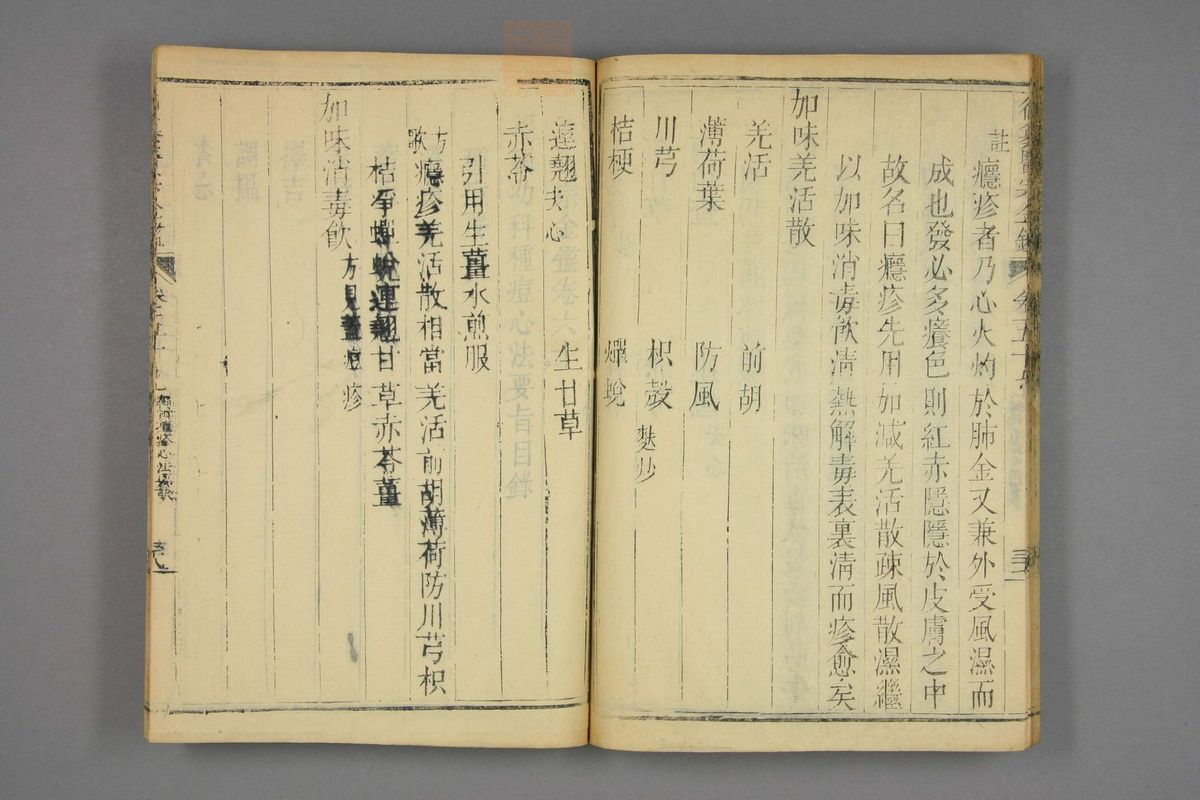 註
癮疹者乃心火灼於肺金又兼外受風濕而
成也發必多癢色則紅赤隱隱於皮膚之中
故名曰癮疹先用加減羌活散疎風散濕繼
以加味消毒飲淸熱解毒表裏淸而疹愈矣
加味羌活散
羌活 前胡
薄荷葉 防風
川芎 枳殼 麩炒
桔梗 蟬蛻
連翹 去心 生甘草
赤苓
引用生薑水煎服
方歌 癮疹羌活散相當羌活前胡薄荷防川芎枳
桔淨蟬蛻連翹甘草赤苓薑
加味消毒飲 方見蓋痘疹